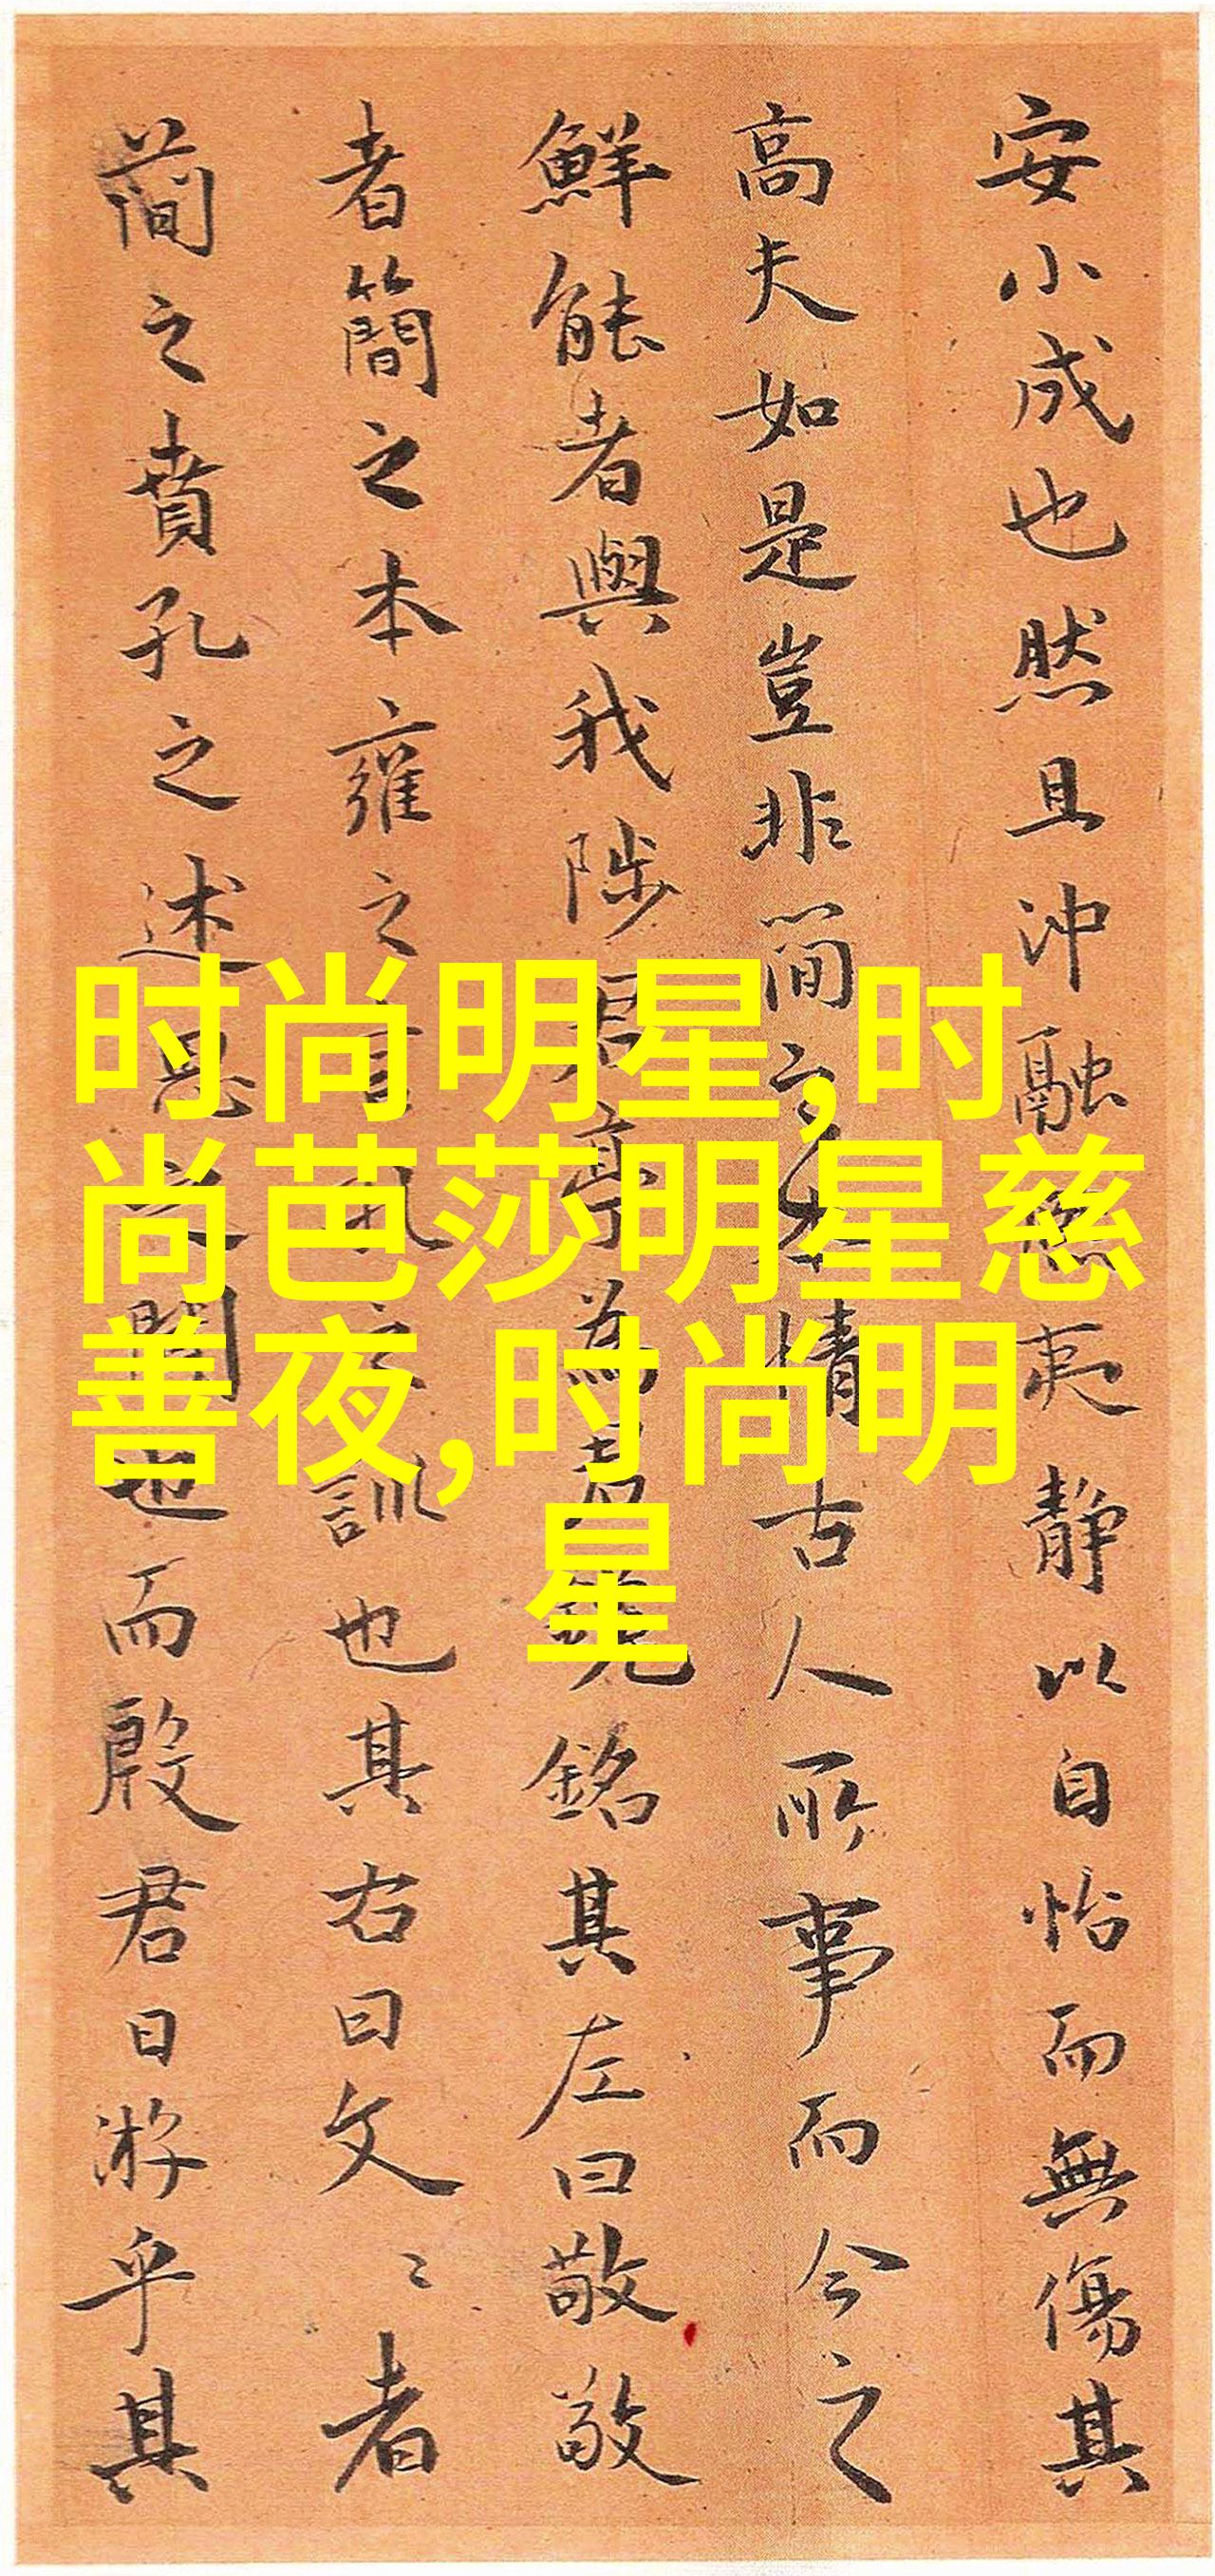 安小成也然且沖融
夷靜以自怡而無傷其
高夫如是豈非簡之
情古人所事而今之
鮮能者與我陟君亭為君
銘其左曰敬敬
者簡之本雍之
訓也其右曰文〻者
簡之賁孔之述
也而殷君日游乎其
时尚明星,时
尚芭莎明星慈
善夜,时尚明
星